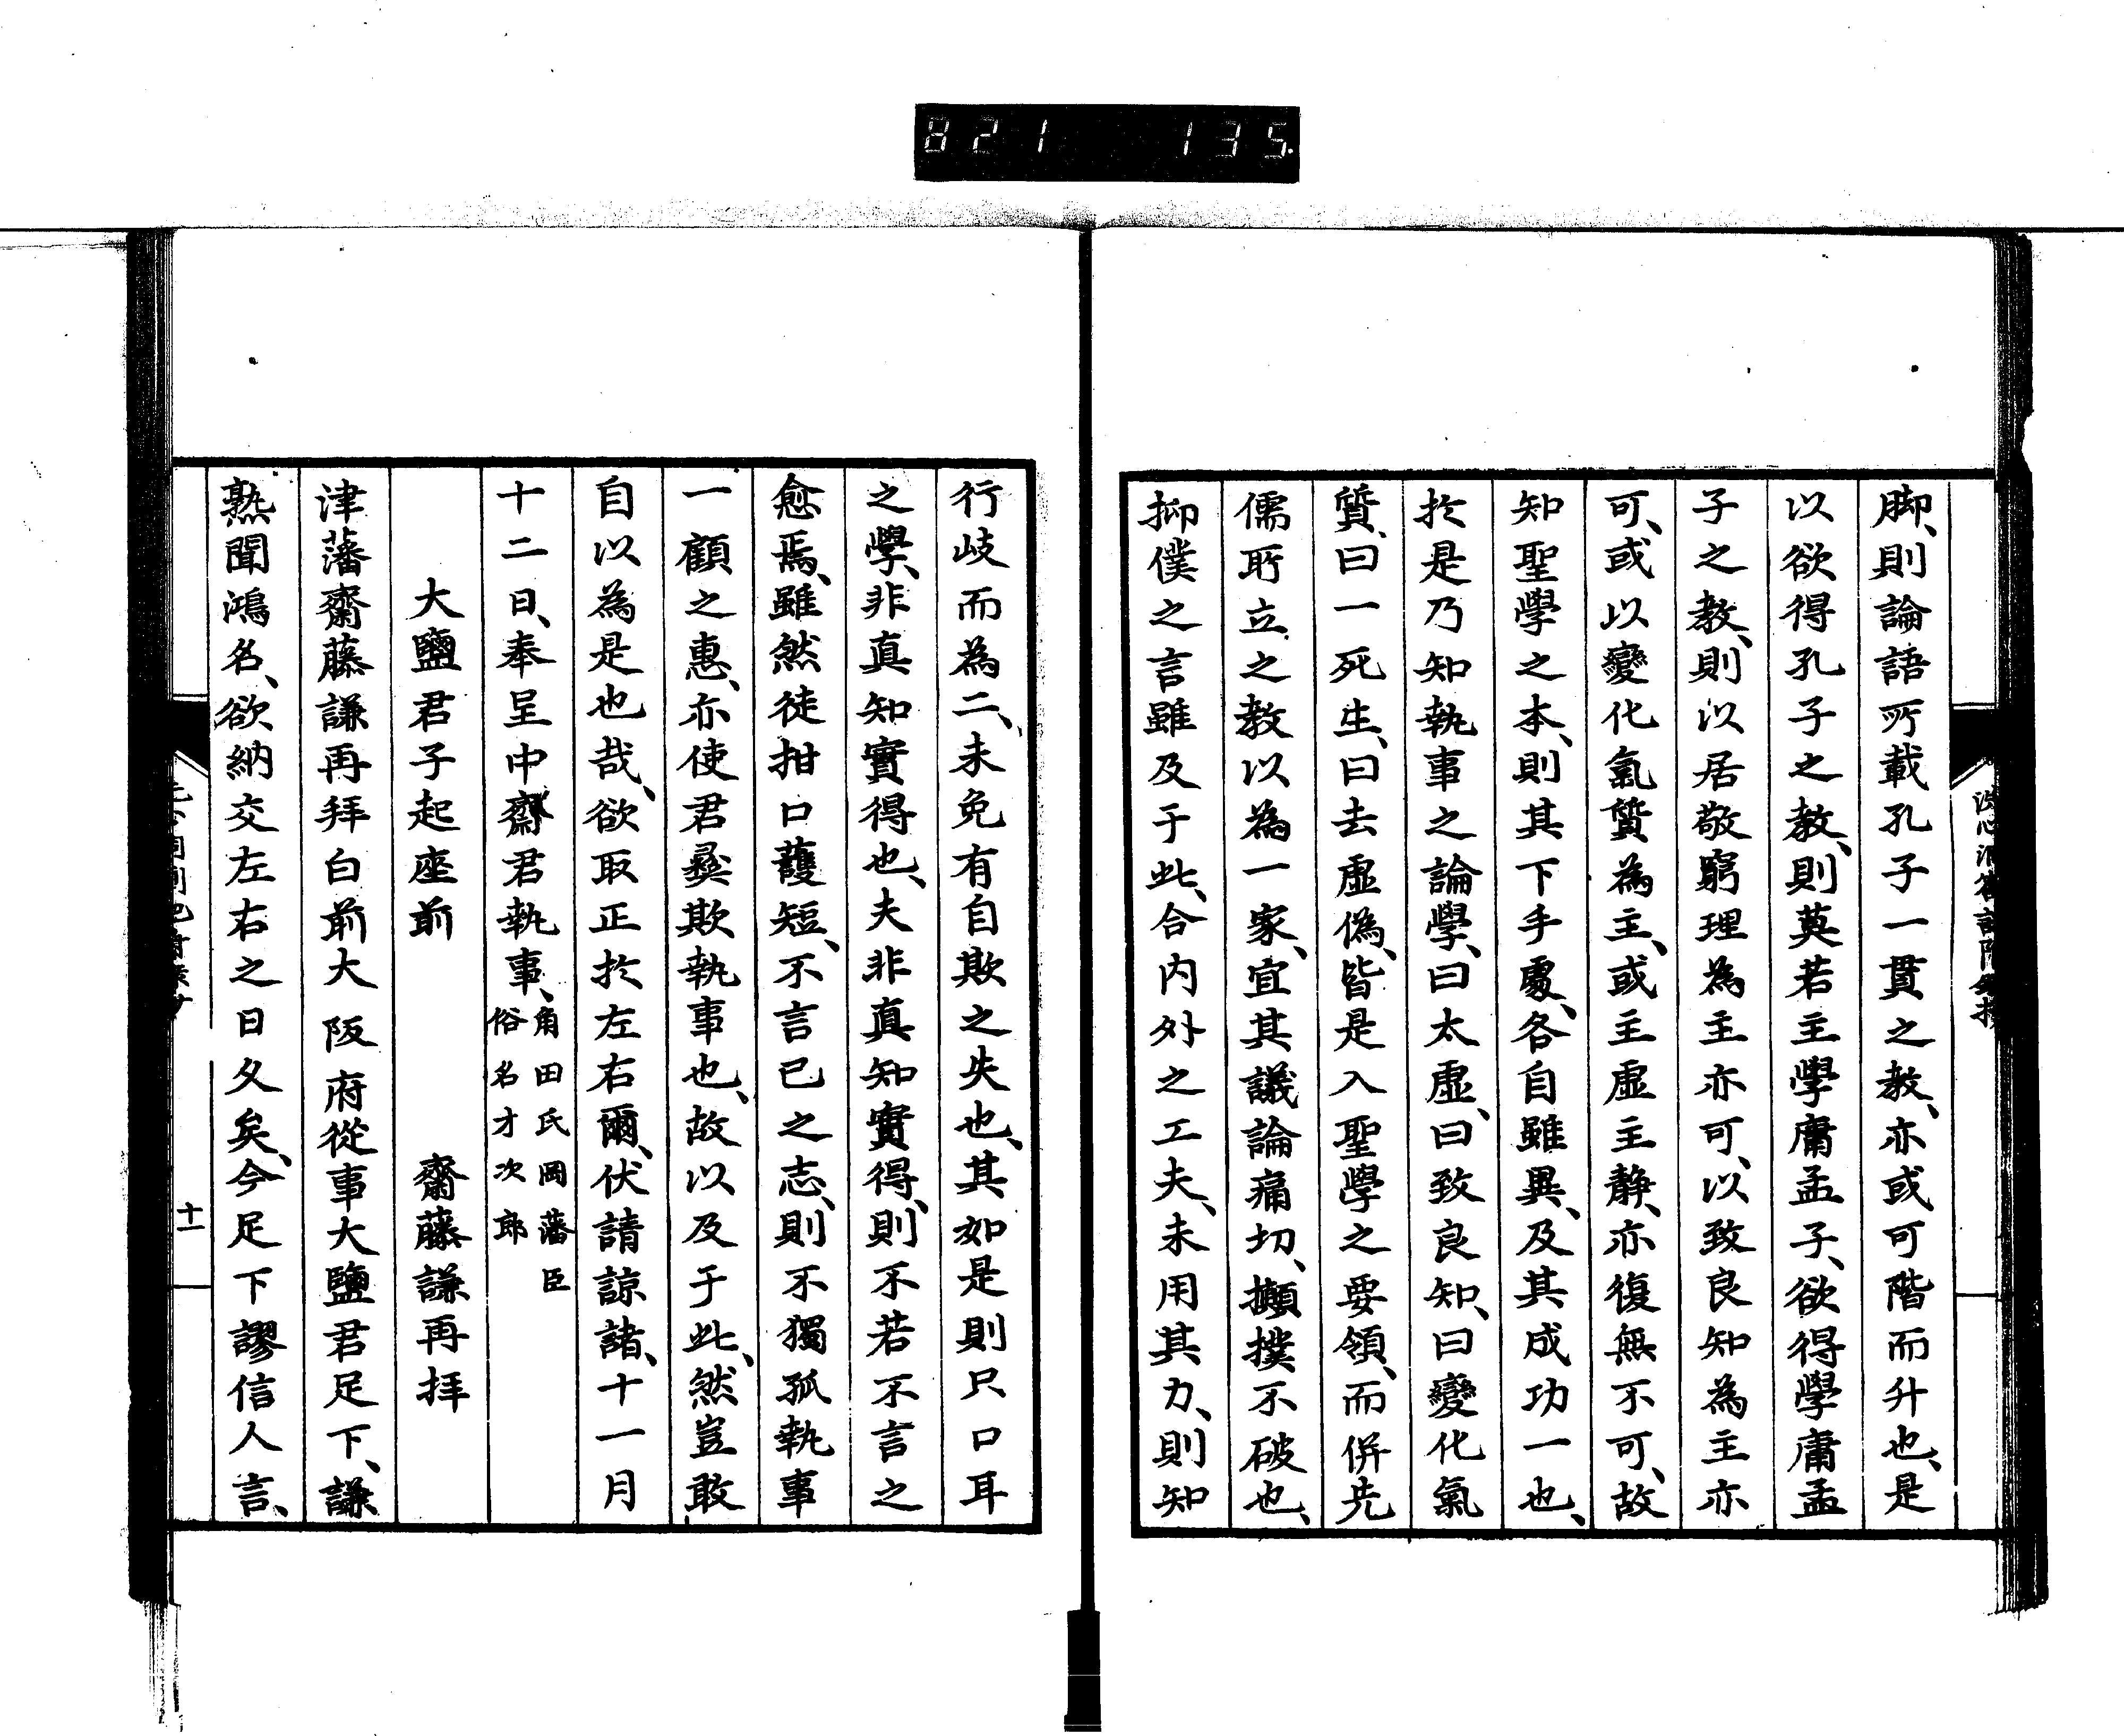 821 135
脚、則論語所載孔子一貫之教、亦或可階而升也、是
以欲得孔子之教、則莫若主學庸孟子、欲得學庸孟
子之教、則以居敬窮理為主亦可、以致良知為主亦
可、或以變化氣質為主、或主虛主靜、亦復無不可、故
知聖學之本、則其下手處、各自雖異、及其成功一也、
於是乃知執事之論學、曰太虛、曰致良知、曰變化氣
質、曰一死生、曰去虛偽、皆是入聖學之要領、而併先
儒所立之教以為一家、宜其議論痛切、攧撲不破也、
抑僕之言雖及于此、合内外之工夫、未用其力、則知
行岐而為二、未免有自欺之失也、其如是則只口耳
之學、非真知實得也、夫非真知實得、則不若不言之
愈焉、雖然徒拑口護短、不言已之志、則不獨孤執事
一顧之惠、亦使君彜欺執事也、故以及于此、然豈敢
自以為是也哉、欲取正於左右爾、伏請諒諸、十一月
十二日、奉呈中齋君執事、角田氏岡藩臣
俗名才次郎
大鹽君子起座前　齋藤謙再拝
津藩齋藤謙再拜白前大阪府從事大鹽君足下、謙
熟聞鴻名、欲納交左右之日久矣、今足下謬信人言、
十一